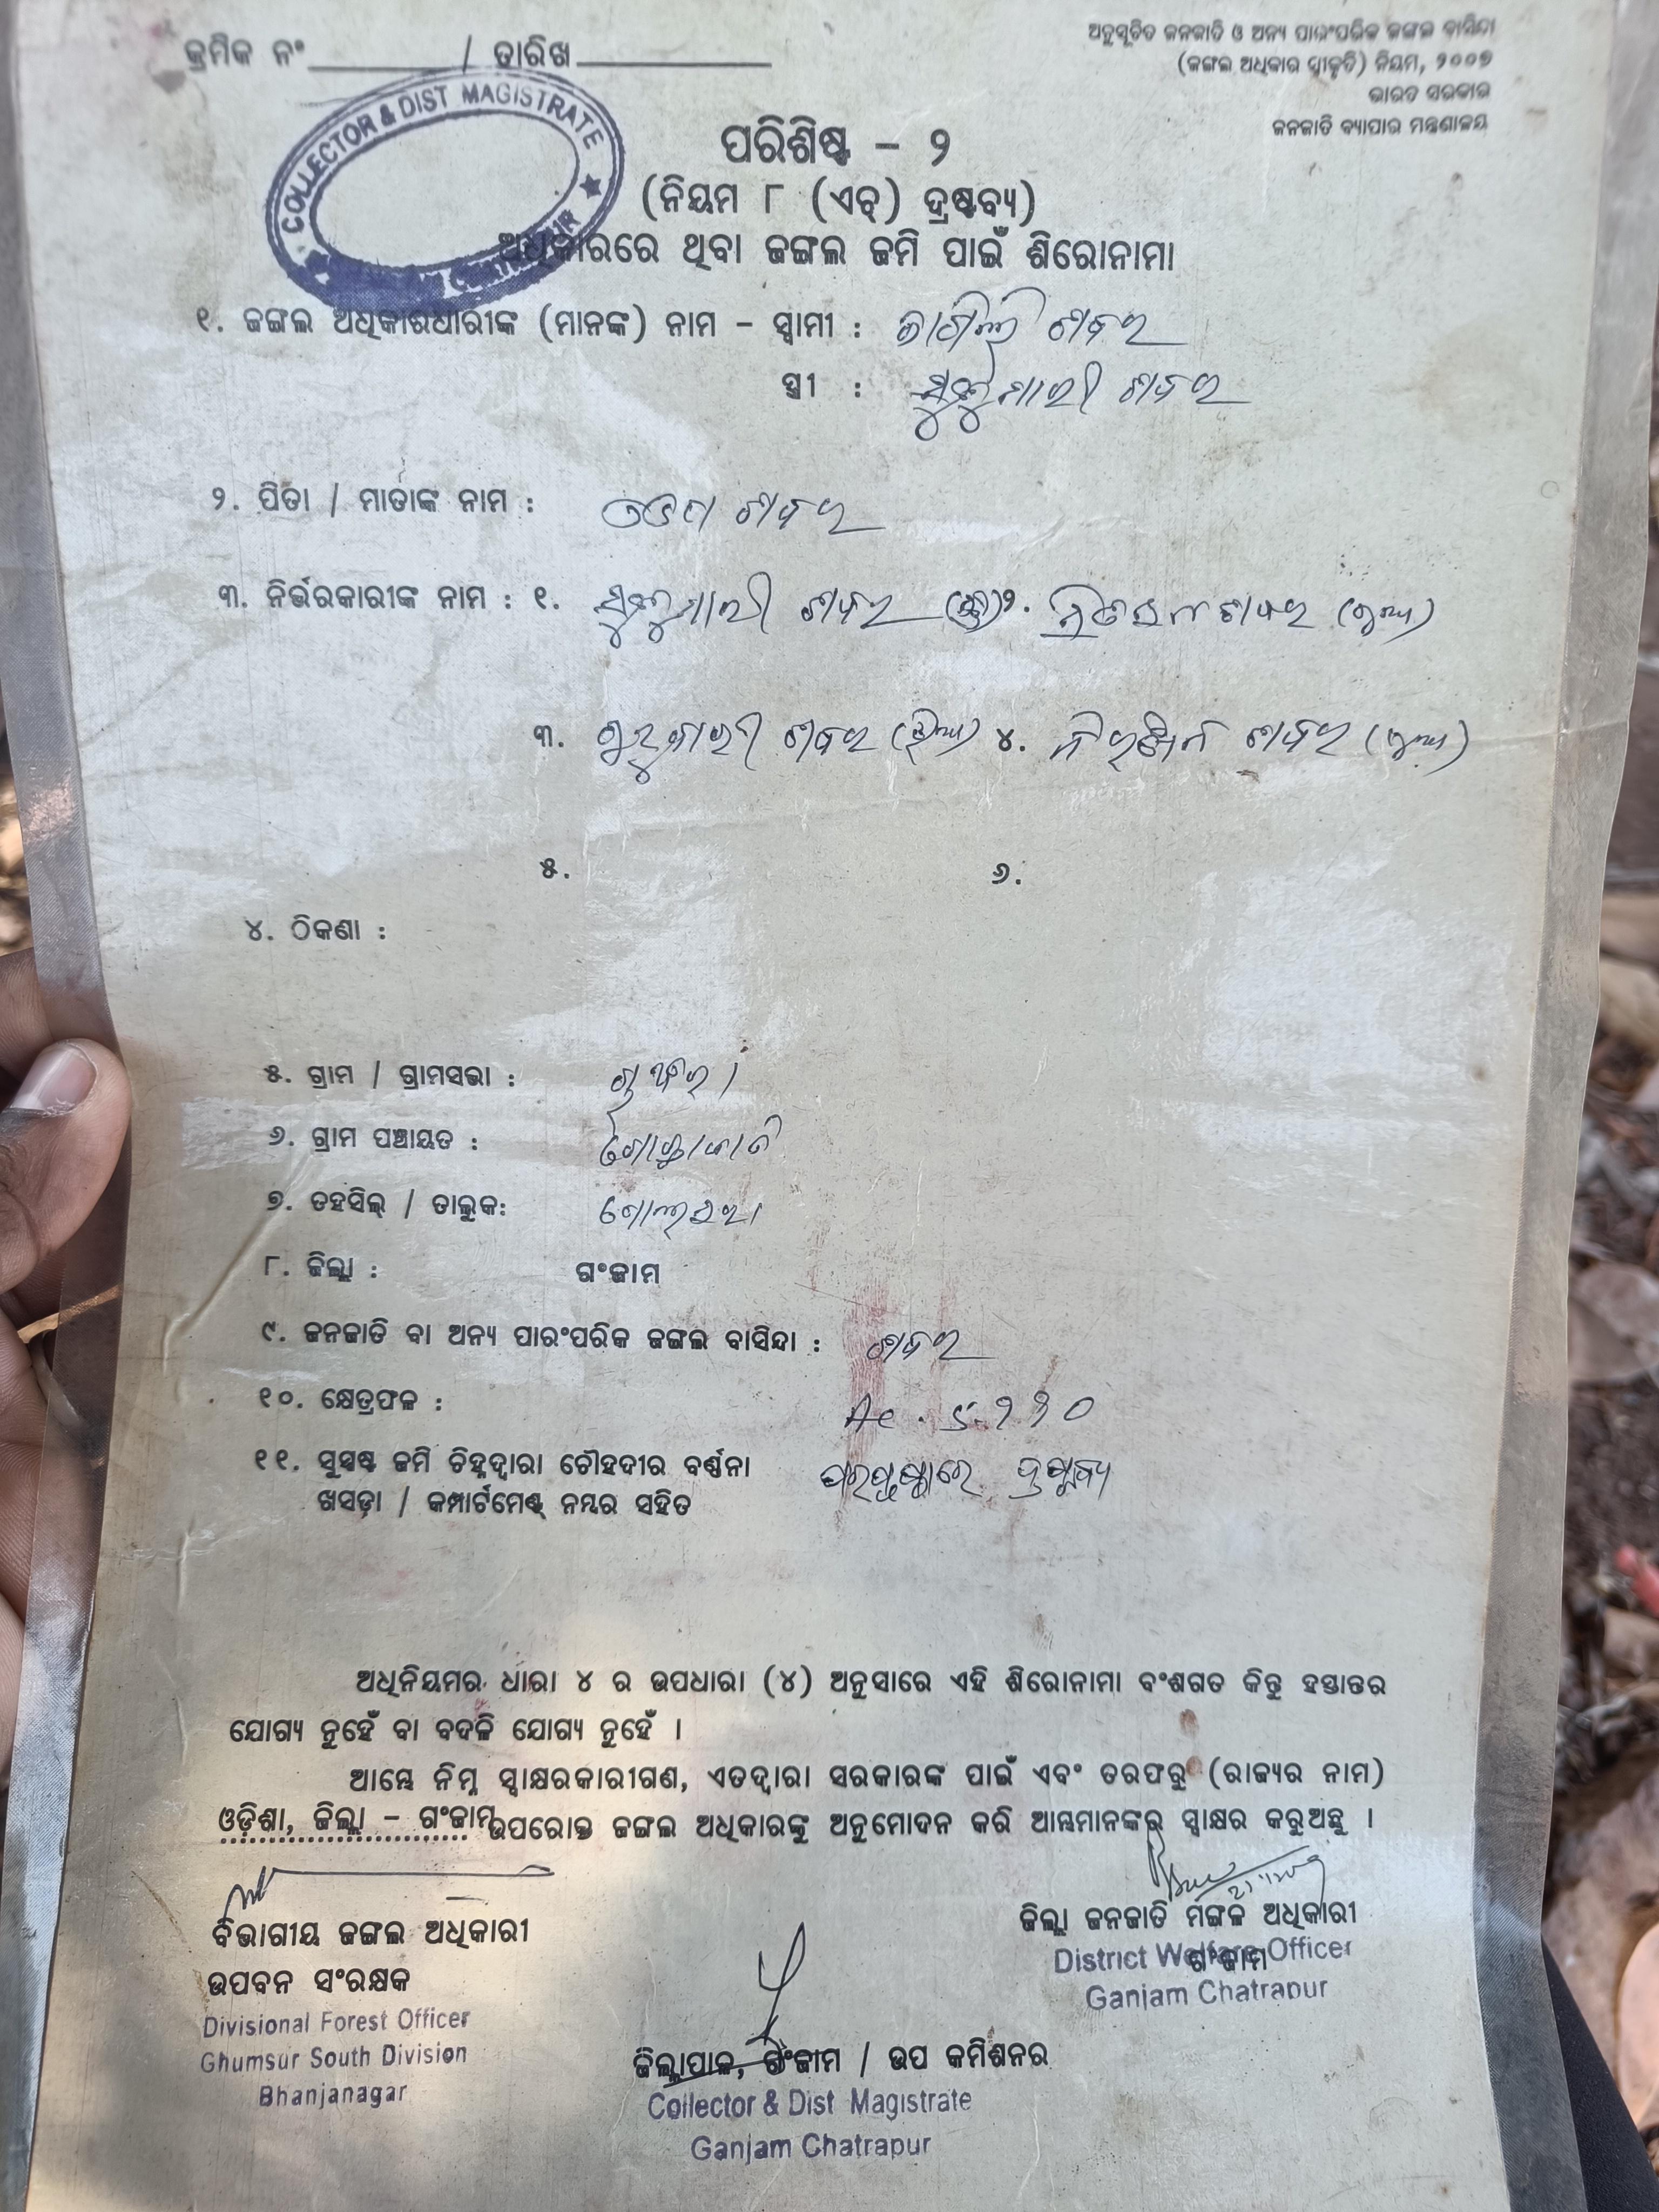 କ୍ରମିକ ନଂ / ତାରିଖ
ଅନୁସୂଚିତ ଜନଜାତି ଓ ଅନ୍ୟ ପାରଂପରିକ ଜଙ୍ଗଲ ବାସିନ୍ଦା
(ଜଙ୍ଗଲ ଅଧିକାର ସ୍ୱୀକୃତି) ନିୟମ, ୨୦୦୭
ଭାରତ ସରକାର
ଜନଜାତି ବ୍ୟାପାର ମନ୍ତ୍ରଣାଳୟ
COLLECTOR & DIST MAGISTRATE
ପରିଶିଷ୍ଟ - ୨
(ନିୟମ ୮ (ଏଚ୍) ଦ୍ରଷ୍ଟବ୍ୟ)
ଅଧିକାରରେ ଥିବା ଜଙ୍ଗଲ ଜମି ପାଇଁ ଶିରୋନାମା
୧. ଜଙ୍ଗଲ ଅଧିକାରଧାରୀଙ୍କ (ମାନଙ୍କ) ନାମ - ସ୍ୱାମୀ : ଶବର
ସ୍ତ୍ରୀ : ଶବର
୨. ପିତା / ମାତାଙ୍କ ନାମ : ଶବର
୩. ନିର୍ଭରକାରୀଙ୍କ ନାମ : ୧. ଶବର (ସ୍ତ୍ରୀ) ୨. ଶବର (ପୁଅ)
୩. ଶବର (ଝିଅ) ୪. ନିରଞ୍ଜନ ଶବର (ପୁଅ)
୫. ୬.
୪. ଠିକଣା :
୫. ଗ୍ରାମ / ଗ୍ରାମସଭା :
୬. ଗ୍ରାମ ପଞ୍ଚାୟତ :
୭. ତହସିଲ୍ / ତାଲୁକ:
୮. ଜିଲ୍ଲା : ଗଂଜାମ
୯. ଜନଜାତି ବା ଅନ୍ୟ ପାରଂପରିକ ଜଙ୍ଗଲ ବାସିନ୍ଦା : ଶବର
୧୦. କ୍ଷେତ୍ରଫଳ : Ac.
୧୧. ସୁସ୍ପଷ୍ଟ ଜମି ଚିହ୍ନଦ୍ୱାରା ଚୌହଦ୍ଦୀର ବର୍ଣ୍ଣନା ପରପୃଷ୍ଠାରେ ଦ୍ରଷ୍ଟବ୍ୟ
ଖସଡ଼ା / କମ୍ପାର୍ଟମେଣ୍ଟ୍ ନମ୍ବର ସହିତ
ଅଧିନିୟମର ଧାରା ୪ ର ଉପଧାରା (୪) ଅନୁସାରେ ଏହି ଶିରୋନାମା ବଂଶଗତ କିନ୍ତୁ ହସ୍ତାନ୍ତର
ଯୋଗ୍ୟ ନୁହେଁ ବା ବଦଳି ଯୋଗ୍ୟ ନୁହେଁ ।
ଆମ୍ଭେ ନିମ୍ନ ସ୍ୱାକ୍ଷରକାରୀଗଣ, ଏତଦ୍ୱାରା ସରକାରଙ୍କ ପାଇଁ ଏବଂ ତରଫରୁ (ରାଜ୍ୟର ନାମ)
ଓଡ଼ିଶା, ଜିଲ୍ଲା - ଗଂଜାମ ଉପରୋକ୍ତ ଜଙ୍ଗଲ ଅଧିକାରଙ୍କୁ ଅନୁମୋଦନ କରି ଆମ୍ଭମାନଙ୍କର ସ୍ୱାକ୍ଷର କରୁଅଛୁ ।
ବିଭାଗୀୟ ଜଙ୍ଗଲ ଅଧିକାରୀ
ଉପବନ ସଂରକ୍ଷକ
Divisional Forest Officer
Ghumsur South Division
Bhanjanagar
ଜିଲ୍ଲାପାଳ, ଗଂଜାମ / ଉପ କମିଶନର
Collector & Dist Magistrate
Ganjam Chatrapur
ଜିଲ୍ଲା ଜନଜାତି ମଙ୍ଗଳ ଅଧିକାରୀ
ଗଂଜାମ
District Welfare Officer
Ganjam Chatrapur